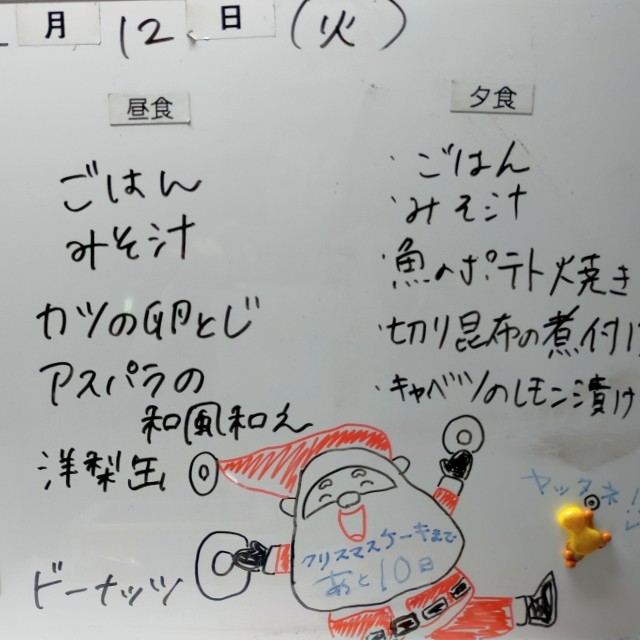 月 12 日 (火)
昼食
ごはん
みそ汁
カツの卵とじ
アスパラの
和風和え
洋梨缶
ドーナッツ
夕食
・ごはん
・みそ汁
・魚のポテト焼き
・切り昆布の煮付け
・キャベツのレモン漬け
クリスマスケーキまで
あと10日
ヤッタネ!!